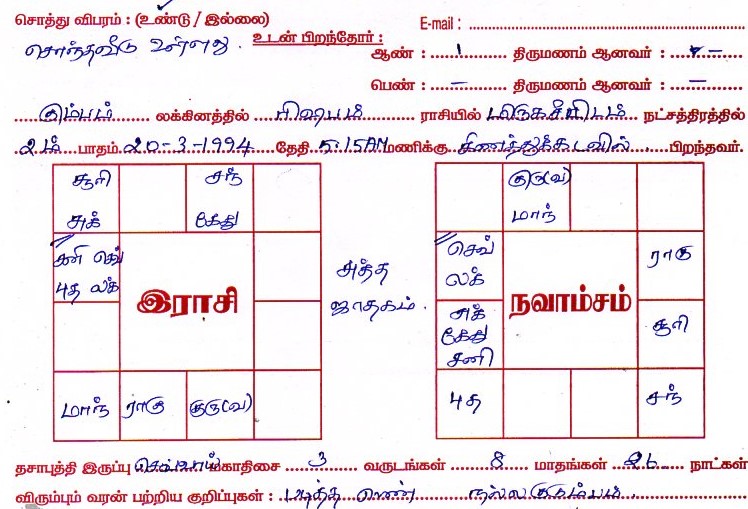 சொத்து விபரம் : (உண்டு / இல்லை)
E-mail :
சொந்தவீடு உள்ளது.
உடன் பிறந்தோர் :
ஆண் : 1 திருமணம் ஆனவர் : –
பெண் : – திருமணம் ஆனவர் : –
கும்பம் லக்கினத்தில் ரிஷபம் ராசியில் மிருகசீரிடம் நட்சத்திரத்தில்
2ம் பாதம் 20-3-1994 தேதி 5:15AM மணிக்கு கிணத்துக்கடவில் பிறந்தவர்.
சூரி சந்
சுக் கேது
சனி செவ்
புத லக்
இராசி
மாந் ராகு குரு(வ)
சுத்த
ஜாதகம்.
குரு(வ)
மாந்
செவ்
லக்
ராகு
நவாம்சம்
சுக்
கேது
சனி
சூரி
புத சந்
தசாபுத்தி இருப்பு செவ்வாய் மகாதிசை 3 வருடங்கள் 8 மாதங்கள் 26 நாட்கள்
விரும்பும் வரன் பற்றிய குறிப்புகள் : படித்த பெண் நல்ல குடும்பம்.